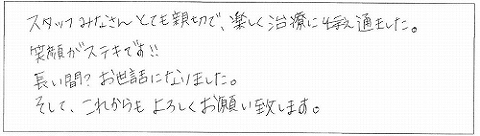 スタッフみなさんとても親切で、楽しく治療に通えました。
笑顔がステキです!!
長い間?お世話になりました。
そして、これからもよろしくお願い致します。